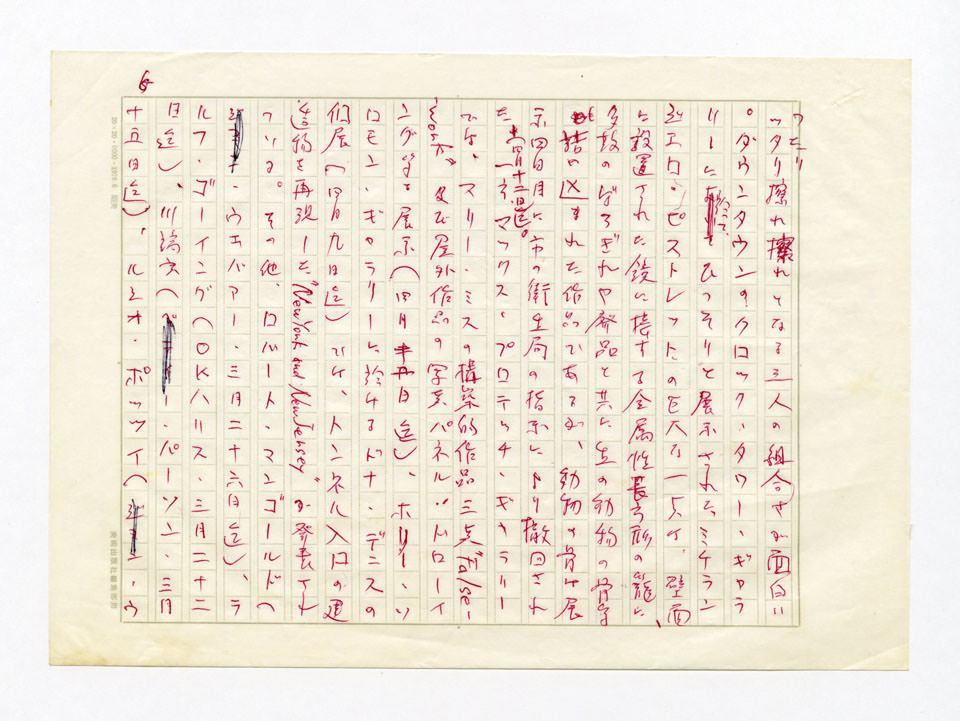 6
ったり
ッタリ擦れ擦れとなる三人の組合せが面白い
。ダウンタウンのクロック・タワー・ギャラ
リーに於てひっそりと展示されたミケラン
ジェロ・ピストレットの巨大な一点は、壁面
に設置された鏡に接する金属性長方形の籠に、
多数のぼろぎれや廃品と共に生の動物の骨等
も詰め込まれた作品であるが、動物の骨は展
示四日目に市の衛生局の指示により撤回され
た(四月十二日迄)。マックス・プロテッチ・ギャラリー
では、マリー・ミスの構築的作品三点"False-
work"及び屋外作品の写真パネル、ドローイ
ング等を展示(四月 日迄)、ホリー・ソ
ロモン・ギャラリーに於けるドナ・デニスの
個展(四月九日迄)では、トンネル入口の建
造物を再現した"New York and New Jersey"が発表され
ている。その他、ロバート・マンゴールド(
・ウエバー・三月二十六日迄)、ラ
ルフ・ゴーイング(OKハリス・三月二十二
日迄)、川端実(ベ ー・パーソン・三月
十五日迄)、ルチオ・ポッツイ( ・ウ
20×20
美術出版社編集部用